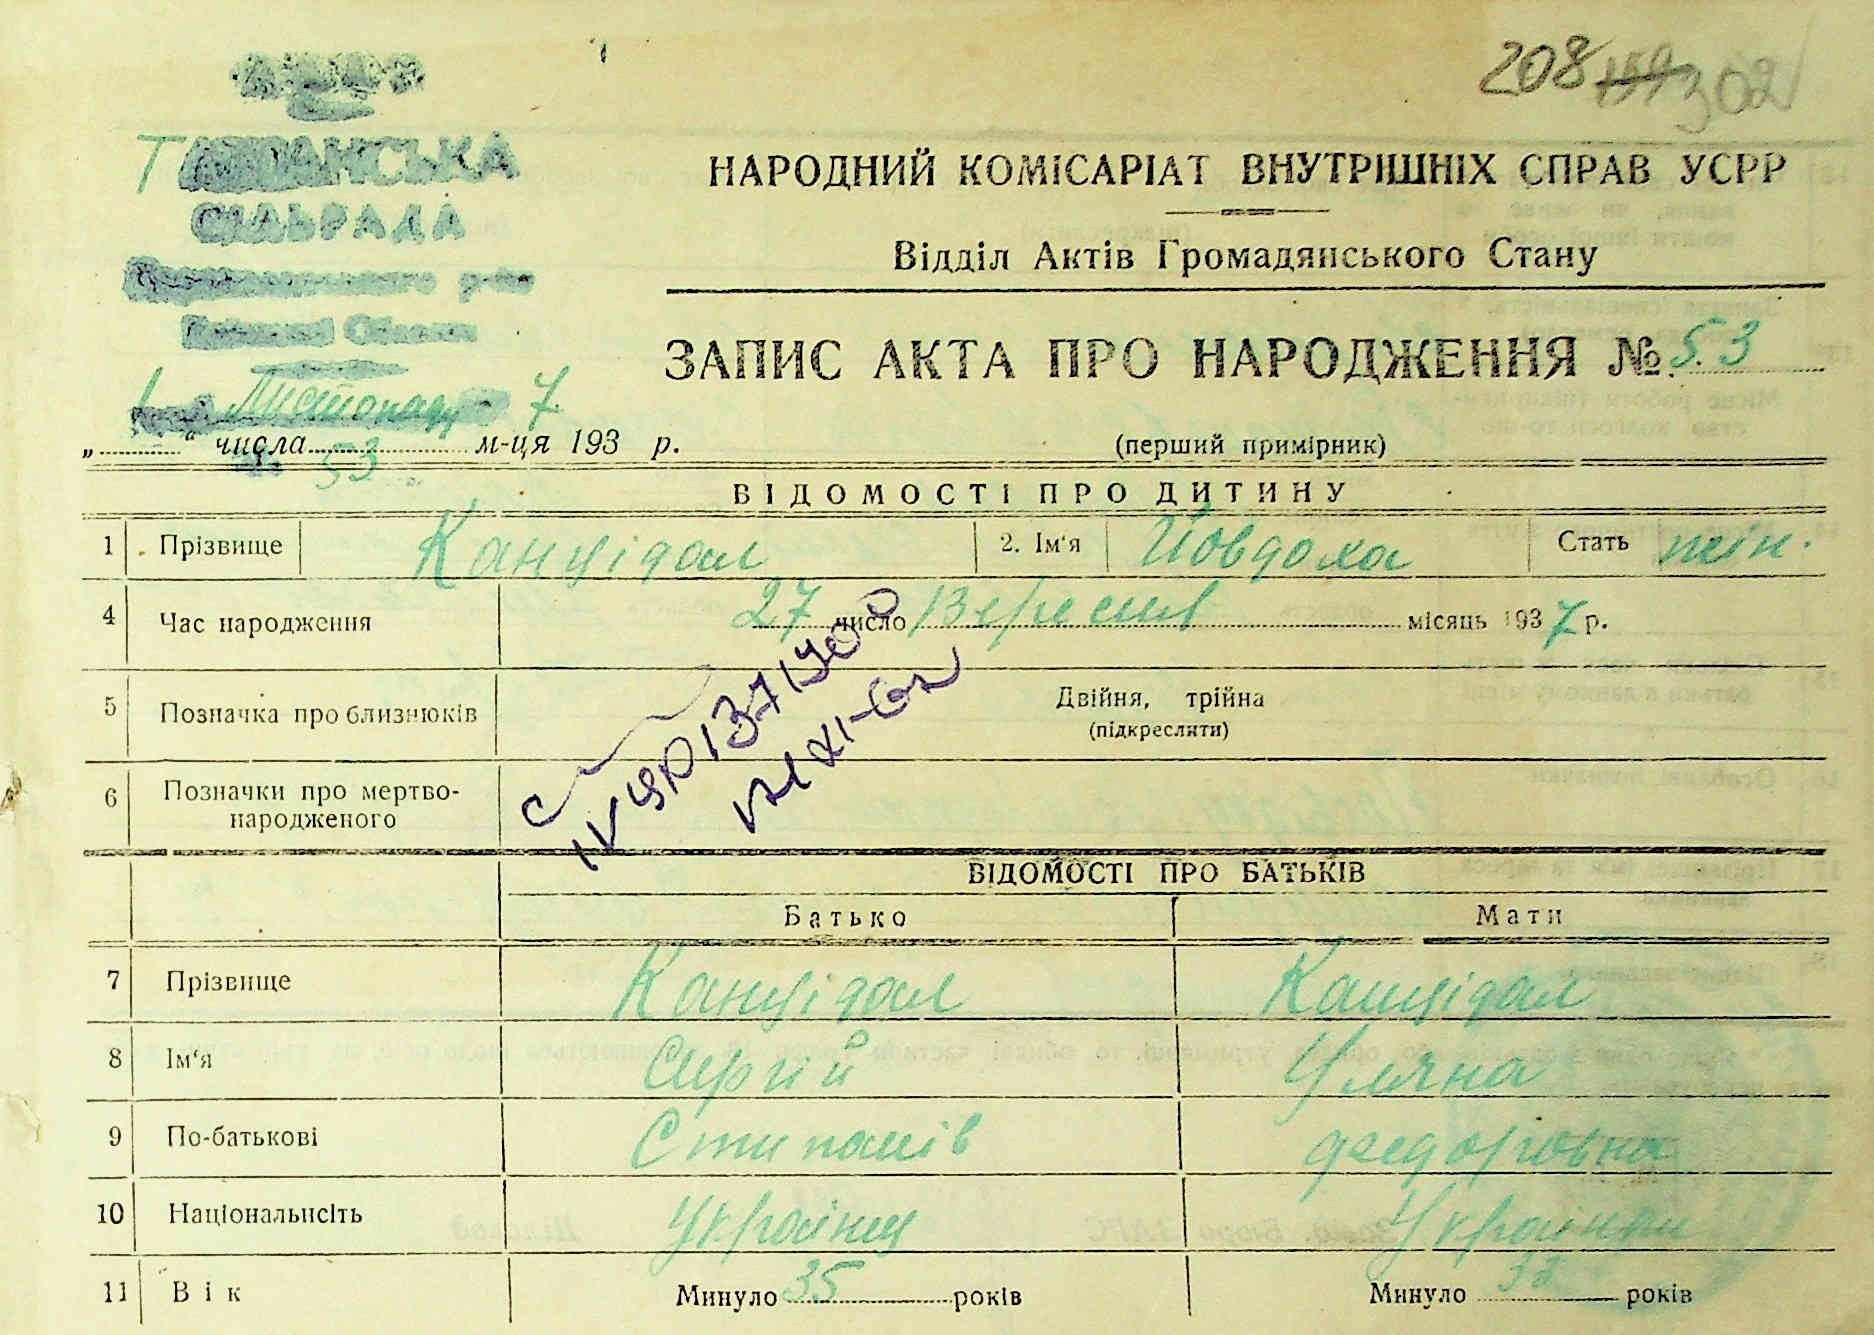 208 159 302
СІЛЬРАДА
НАРОДНИЙ КОМІСАРІАТ ВНУТРІШНІХ СПРАВ УСРР
Відділ Актів Громадянського Стану
ЗАПИС АКТА ПРО НАРОДЖЕННЯ № 53
„ 1 “ числа Листопаду м-ця 193 7 р.
53
(перший примірник)
ВІДОМОСТІ ПРО ДИТИНУ
1 Прізвище Канцідал 2. Ім'я Йовдоха Стать жін.
4 Час народження 27 число Вересня місяць 1937 р.
5 Позначка про близнюків Двійня, трійна
(підкреслити)
6 Позначки про мертво-
народженого
ВІДОМОСТІ ПРО БАТЬКІВ
Батько Мати
7 Прізвище Канцідал Канцідал
8 Ім'я Сергій Уляна
9 По-батькові Степанів Федоровна
10 Національність Українец Українка
11 Вік Минуло 35 років Минуло років